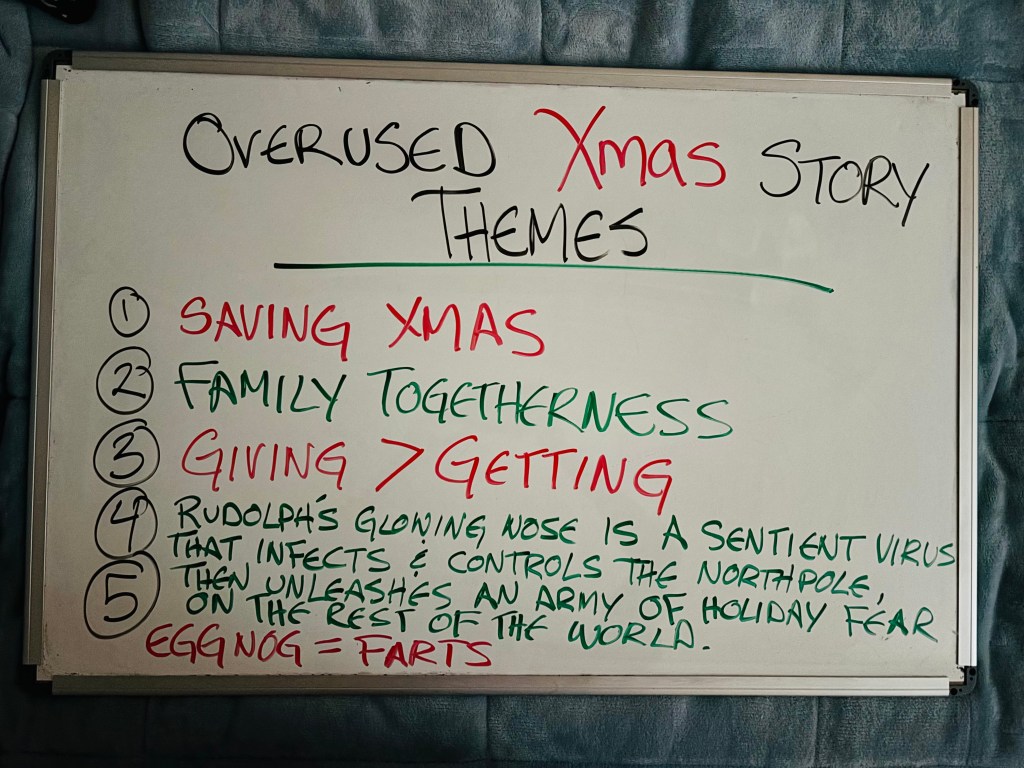 OVERUSED Xmas STORY
THEMES
① SAVING XMAS
② FAMILY TOGETHERNESS
③ GIVING > GETTING
④ RUDOLPH'S GLOWING NOSE IS A SENTIENT VIRUS
THAT INFECTS & CONTROLS THE NORTHPOLE,
THEN UNLEASHES AN ARMY OF HOLIDAY FEAR
ON THE REST OF THE WORLD.
⑤ EGGNOG = FARTS